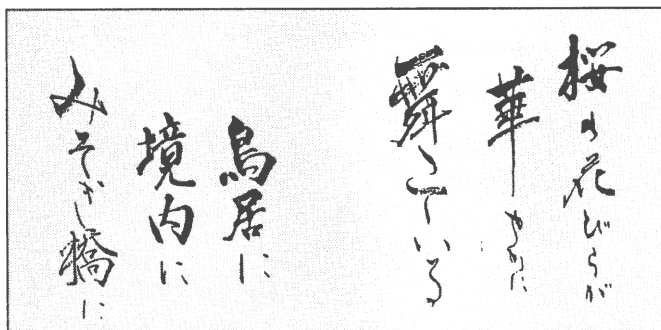 桜の花びらが
華やかに
舞っている
鳥居に
境内に
みそぎ橋に